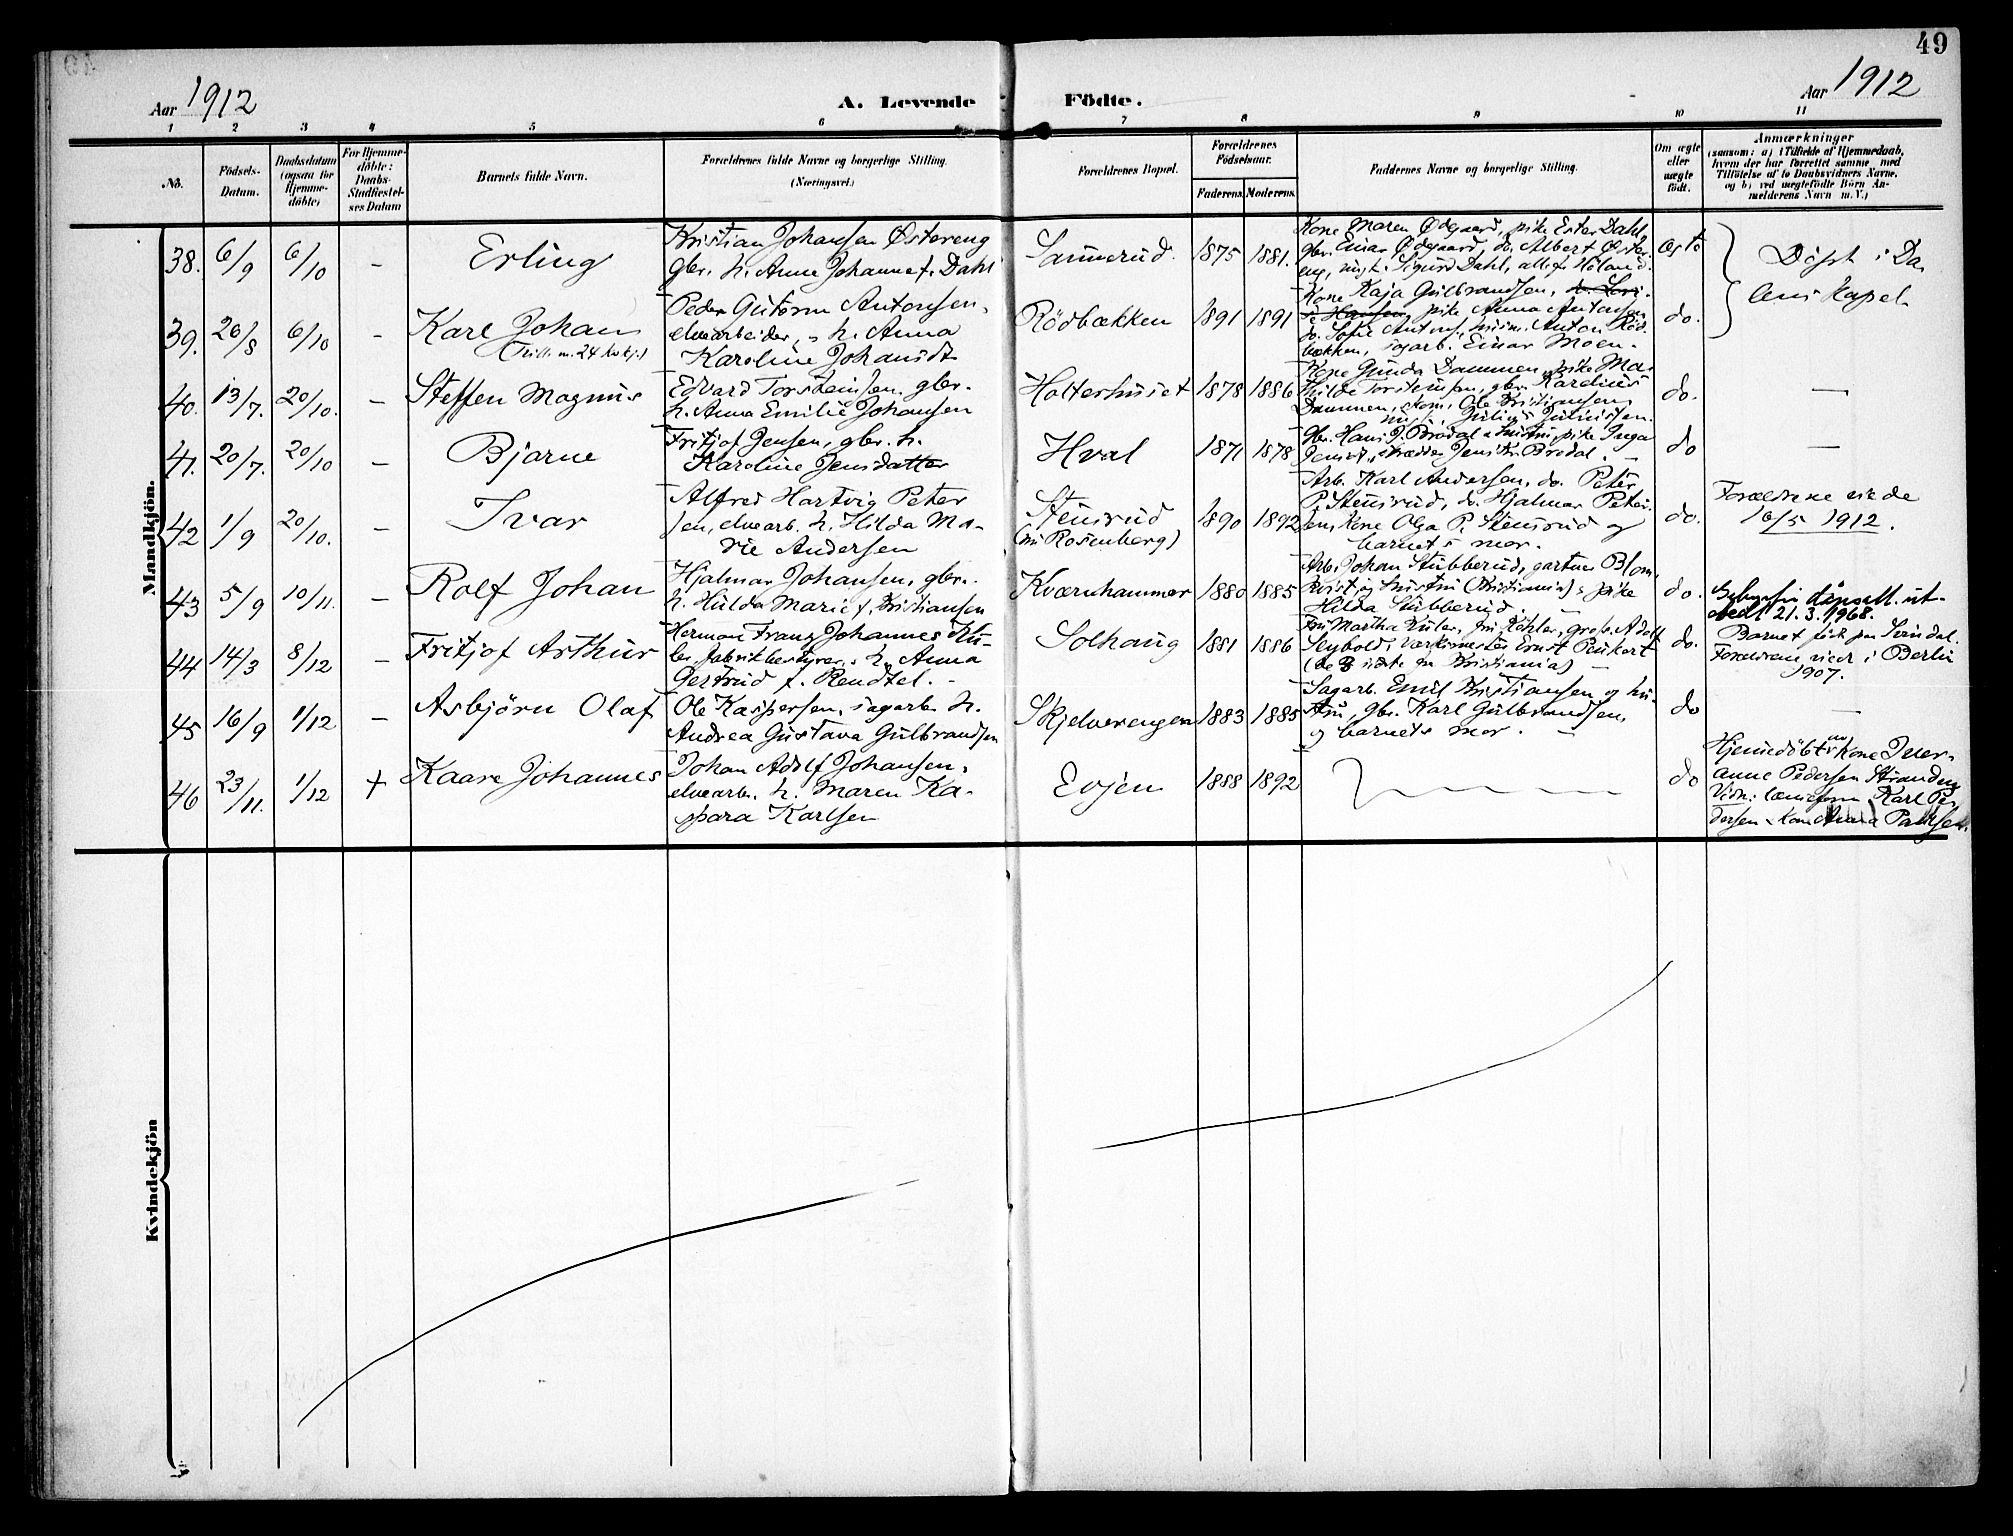 49
Aar 1912
A. Levende Födte.
Aar 1912
1 2 3 4 5 6 7 8 9 10 11
No.
Födsels-
Datum.
Daabsdatum
(ogsaa for
Hjemme-
döbte)
For Hjemme-
döbte:
Daabs-
Stadfæstel-
ses Datum
Barnets fulde Navn.
Forældrenes fulde Navne og borgerlige Stilling.
(Næringsvei.)
Forældrenes Bopæl.
Forældrenes
Födselsaar.
Faderens. Moderens.
Faddernes Navne og borgerlige Stilling.
Om ægte
eller
uægte
födt.
Anmærkninger
(saasom: a) i Tilfælde af Hjemmedaab,
hvem der har forrettet samme, med
Tilföielse af to Daabsvidners Navne,
og b) ved uægtefödte Börn An-
melderens Navn m. V.)
Mandkjön.
38. 6/9 6/10 - Erling
Kristian Johansen Østereng
gbr. h. Anne Johanne f. Dahl
Sannerud. 1875 1881.
Kone Maren Ødegaard, pike Ester Dahl,
gbr. Einar Ødegaard, do. Albert Øster-
eng, ungk. Sigurd Dahl, alle f. Höland.
ægte
Döpt i Da
lens Kapel
39. 20/8 6/10 - Karl Johan
(Tvill. m. 24 kvkj.)
Peder Gutorm Antonsen,
elvearbeider, h. Anna
Karoline Johansdt
Rödbækken 1891 1891
Kone Kaja Gulbrandsen,
pike Anna Antonsen
do. Sofie Antons, Anton Röd-
bækken, sagarb. Einar Moen.
do.
40. 13/7. 20/10. - Steffen Magnus
Edvard Torstensen, gbr.
h. Anna Emilie Johansen
Holterhuset 1878 1886
Kone Gunda Dammen, pike Ma-
thilde Torstensen, gbr. Karelius
Dammen, Ole Kristiansen,
do. —
41. 20/7. 20/10 - Bjarne
Fritjof Jensen, gbr. h.
Karoline Jensdatter
Hval 1871 1878
Gbr. Hans J. Bredal & hustru, pike Inga
Jensdt., skrædder Jens Kr. Bredal. -
do —
42 1/9 20/10. - Ivar
Alfred Hartvig Peter
sen, elvearb. h. Hilda Ma-
rie Andersen
Stensrud
(nu Rosenberg)
1890 1892
Arb. Karl Andersen, do. Peter
P. Stensrud, do. Hjalmar Peter-
sen, kone Olga P. Stensrud og
barnets mor.
do.
Forældrene viede
16/5 1912.
43 5/9 10/11. - Rolf Johan
Hjalmar Johansen, gbr.
h. Hulda Marie f. Kristiansen
Kværnhammer 1880 1885
Arb. Johan Stubberud, gartner Blom-
kvist og hustru (Kristiania), pike
Hilda Stubberud.
do.
dåpsatt. ut-
stedt 21.3.1968.
44 14/3 8/12 - Fritjof Arthur
Herman Franz Johannes Kü-
ler, fabrikbestyrer, h. Anna
Gertrud f. Rendtel.
Solhaug 1881 1886
Fru Martha Küler, fru Köhler, gros. Adolf
Seybold, værksmester Ernst Peukert
(de 3 sidste fra Kristiania)
do.
Barnet født paa Svindal.
Forældrene viede i Berlin
1907.
45 16/9 1/12 - Asbjörn Olaf
Ole Kaspersen, sagarb. h.
Andrea Gustava Gulbrandsen
Skjelverengen 1883 1885
Sagarb. Emil Kristiansen og hu-
stru, gbr. Karl Gulbrandsen,
og barnets mor. -
do —
46 23/11. 1/12 + Kaare Johannes
Johan Adolf Johansen,
elvearb. h. Maren Ka-
spara Karlsen
Evjen 1888 1892
do
Hjemmedöbt av kone Inger-
anne Pedersen Strandeng
Vidn: Karl Pe-
dersen & kone Anna Paulsen.
Kvindekjön